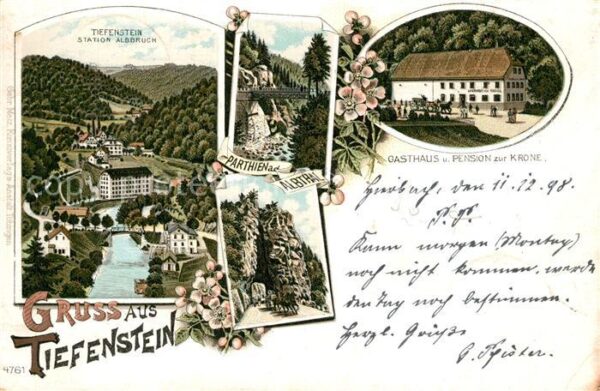 TIEFENSTEIN
STATION ALBBRUCK
PARTHIEN a.d.
ALBTHAL
GASTHAUS u. PENSION zur KRONE.
Gebr. Metz, Kunstverlags-Anstalt, Tübingen
4761
GRUSS AUS
TIEFENSTEIN
den 11.12.98.
P. P.
Kann morgen (Montag)
noch nicht kommen, werde
den Tag noch bestimmen.
Herzl. Grüße